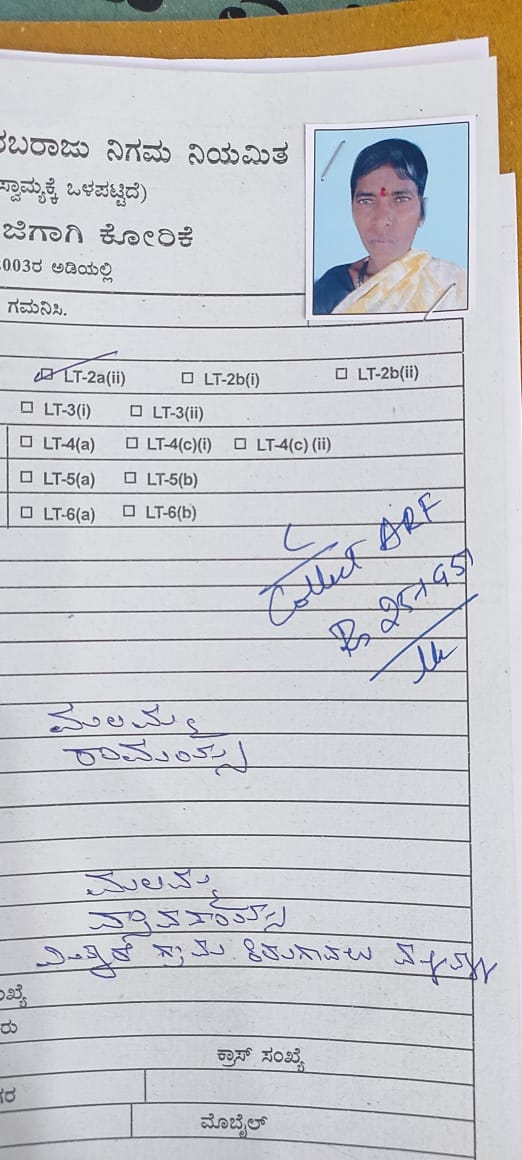 ರಬರಾಜು ನಿಗಮ ನಿಯಮಿತ
ಸ್ವಾಮ್ಯಕ್ಕೆ ಒಳಪಟ್ಟಿದೆ)
ಜಿಗಾಗಿ ಕೋರಿಕೆ
2003ರ ಅಡಿಯಲ್ಲಿ
ಗಮನಿಸಿ.
☐ LT-2a(ii) ☐ LT-2b(i) ☐ LT-2b(ii)
☐ LT-3(i) ☐ LT-3(ii)
☐ LT-4(a) ☐ LT-4(c)(i) ☐ LT-4(c) (ii)
☐ LT-5(a) ☐ LT-5(b)
☐ LT-6(a) ☐ LT-6(b)
Collect ARF
Rs
ಮಲಮ್ಮ
ಮಲಮ್ಮ
ಗ್ರಾಮ ಕಿರುಗಾವಲು
ಂಖ್ಯೆ
ರು
ಕ್ರಾಸ್ ಸಂಖ್ಯೆ
ಗರ
ಮೊಬೈಲ್